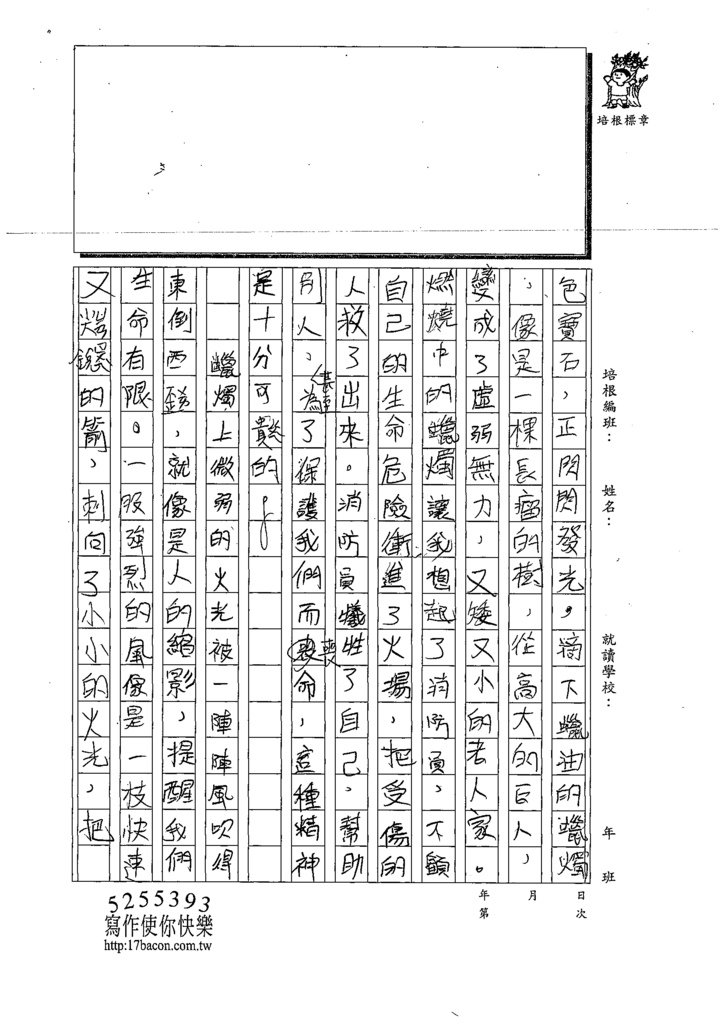 培根標章
培根編班：　姓名：　就讀學校：　年　班
色寶石，正閃閃發光。滴下蠟油的蠟燭
，像是一棵長瘤的樹，從高大的巨人，
變成了虛弱無力，又矮又小的老人家。
燃燒中的蠟燭讓我想起了消防員，不顧
自己的生命危險衝進了火場，把受傷的
人救了出來。消防員犧牲了自己，幫助
別人，甚至為了保護我們而喪命，這種精神
是十分可貴的。
蠟燭上微弱的火光被一陣陣風吹得
東倒西歪，就像是人的縮影，提醒我們
生命有限。一股強烈的風像是一枝快速
又的箭，刺向了小小的火光，把
年　月　日
第　次
5255393
寫作使你快樂
http:17bacon.com.tw